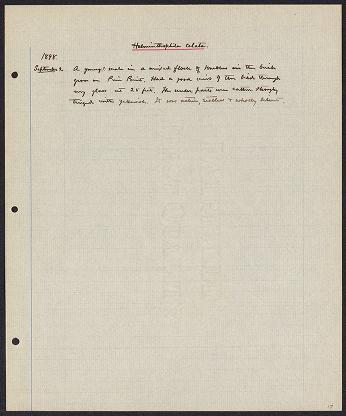 Helminthophila celata.
1898.
September 2. A young? male in a mixed flock of Warblers in the birch
grove on Pine Point. Had a good view of this bird through
my glass at 25 feet. The under parts were rather strongly
tinged with yellowish. It was active, restless & wholly silent.
17